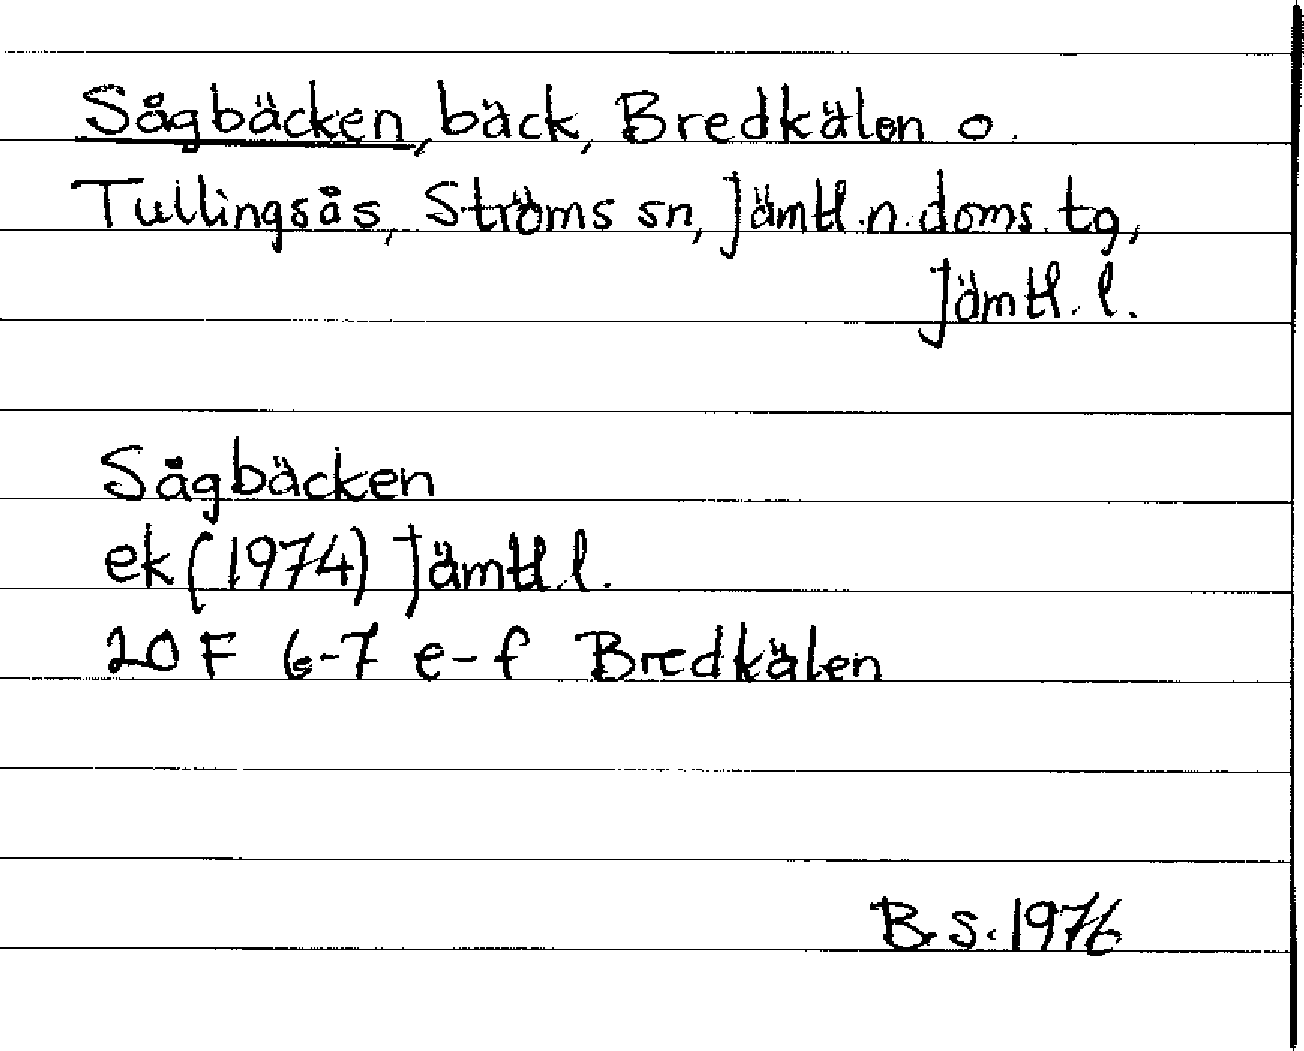 Sågbäcken, bäck, Bredkälen o.
Tullingsås, Ströms sn, Jämtl.n.doms.tg,
Jämtl. l.
Sågbäcken
ek (1974) Jämtl.l.
20 F 6-7 e-f Bredkälen
B.S. 1976